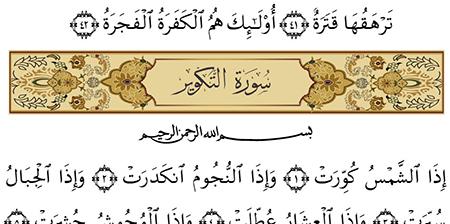 تَرْهَقُهَا قَتَرَةٌ ﴿٤١﴾ أُوْلَـٰٓئِكَ هُمُ ٱلْكَفَرَةُ ٱلْفَجَرَةُ ﴿٤٢﴾
سُورَةُ التَّكْوِيرِ
بسم الله الرحمن الرحيم
إِذَا ٱلشَّمْسُ كُوِّرَتْ ﴿١﴾ وَإِذَا ٱلنُّجُومُ ٱنكَدَرَتْ ﴿٢﴾ وَإِذَا ٱلْجِبَالُ
سُيِّرَتْ ﴿٣﴾ وَإِذَا ٱلْعِشَارُ عُطِّلَتْ ﴿٤﴾ وَإِذَا ٱلْوُحُوشُ حُشِرَتْ ﴿٥﴾